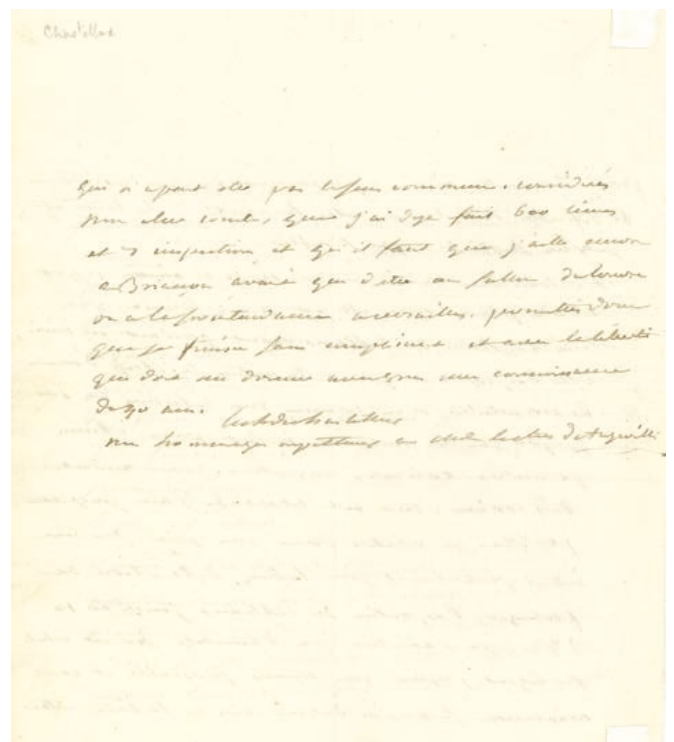 Chastellux
qui n'ayant pas le sens commun. considerés
mon cher comte, que j'ai deja fait 600 lieues
et 7 inspections et qu'il faut que j'aille encore
a Briancon avant que d'etre au sallon du louvre
ou a la surintendance a versailles. permettes donc
que je finisse sans compliment et avec la liberté
que doit me donner une connoissance
de 30 ans.
mes hommages a mde la ctesse d'Angiviller